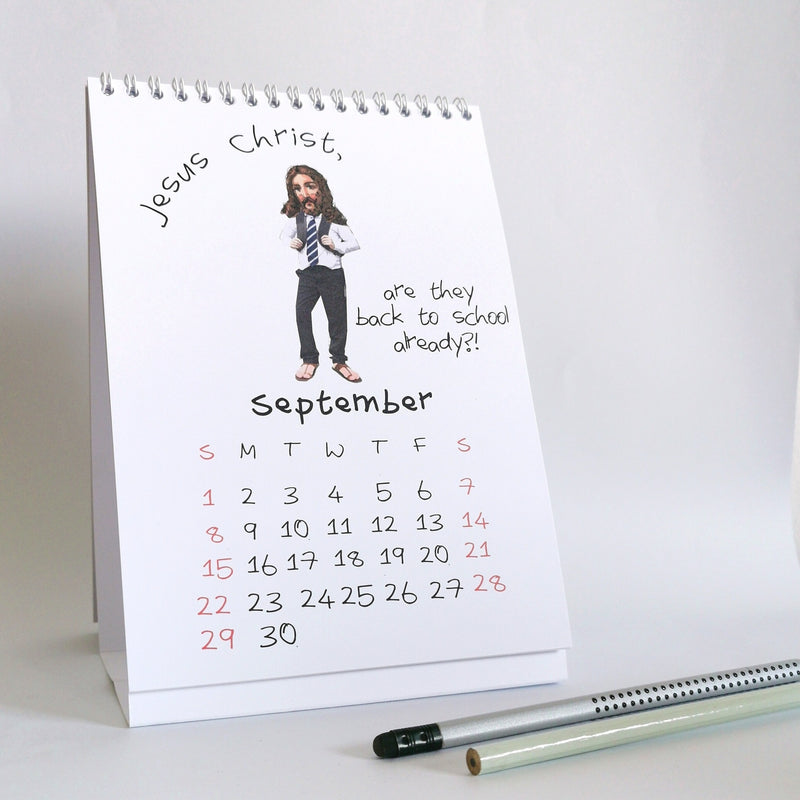 Jesus Christ,
are they
back to school
already?!
September
S M T W T F S
1 2 3 4 5 6 7
8 9 10 11 12 13 14
15 16 17 18 19 20 21
22 23 24 25 26 27 28
29 30